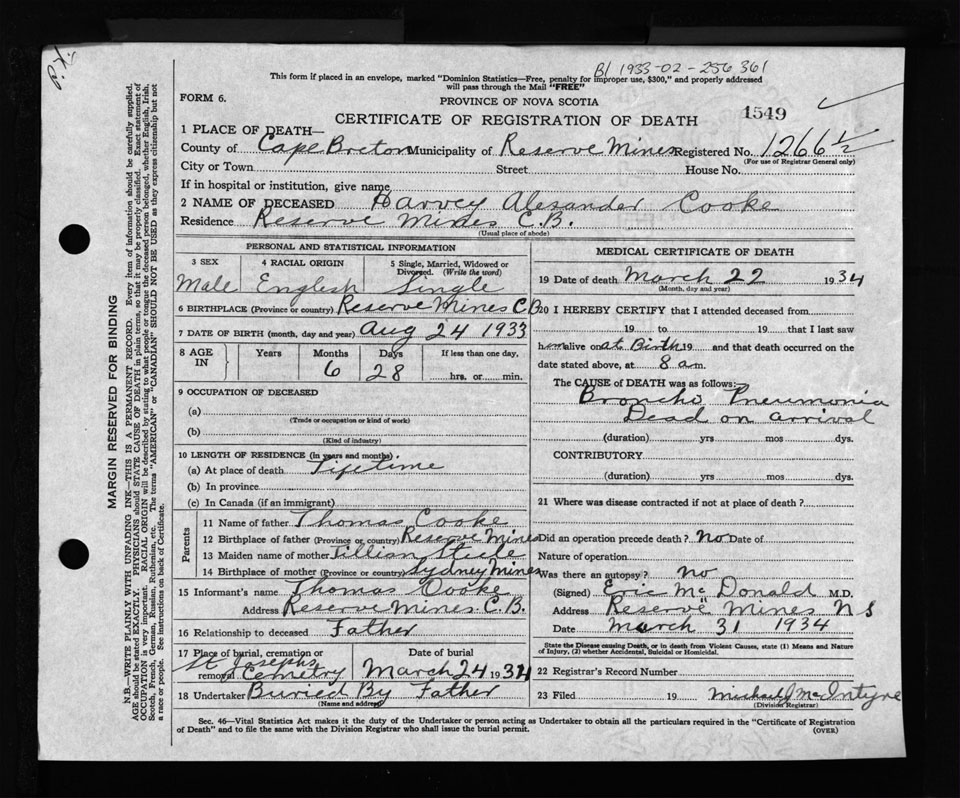 B/ 1933-02-256361
This form if placed in an envelope, marked "Dominion Statistics—Free, penalty for improper use, $300," and properly addressed
will pass through the Mail "FREE"
FORM 6.
PROVINCE OF NOVA SCOTIA
CERTIFICATE OF REGISTRATION OF DEATH
1549
1 PLACE OF DEATH—
County of Cape Breton Municipality of Reserve Mines Registered No. 1266½
(For use of Registrar General only)
City or Town Street House No.
If in hospital or institution, give name
2 NAME OF DECEASED Harvey Alexander Cooke
Residence Reserve Mines C.B.
(Usual place of abode)
PERSONAL AND STATISTICAL INFORMATION
3 SEX 4 RACIAL ORIGIN 5 Single, Married, Widowed or Divorced. (Write the word)
Male English Single
6 BIRTHPLACE (Province or country) Reserve Mines C.B
7 DATE OF BIRTH (month, day and year) Aug 24 1933
8 AGE IN Years Months Days If less than one day.
6 28 hrs. or min.
9 OCCUPATION OF DECEASED
(a)
(Trade or occupation or kind of work)
(b)
(Kind of industry)
10 LENGTH OF RESIDENCE (in years and months)
(a) At place of death Lifetime
(b) In province
(c) In Canada (if an immigrant)
Parents
11 Name of father Thomas Cooke
12 Birthplace of father (Province or country) Reserve Mines
13 Maiden name of mother Lillian Steele
14 Birthplace of mother (Province or country) Sydney Mines
15 Informant's name Thomas Cooke
Address Reserve Mines C.B.
16 Relationship to deceased Father
17 Place of burial, cremation or removal Date of burial
St Josephs Cemetry March 24 1934
18 Undertaker Buried By Father
(Name and address)
MEDICAL CERTIFICATE OF DEATH
19 Date of death March 22 1934
(Month, day and year)
20 I HEREBY CERTIFY that I attended deceased from
19 to 19 that I last saw
him alive on at Birth 19 and that death occurred on the
date stated above, at 8 am.
The CAUSE of DEATH was as follows:
Broncho Pneumonia
Dead on arrival
(duration) yrs mos dys.
CONTRIBUTORY
(duration) yrs mos dys.
21 Where was disease contracted if not at place of death?
Did an operation precede death? No Date of
Nature of operation
Was there an autopsy? no
(Signed) Eric McDonald M.D.
Address Reserve Mines N S
Date March 31 1934
State the Disease causing Death, or in death from Violent Causes, state (1) Means and Nature
of Injury, (2) whether Accidental, Suicidal or Homicidal.
22 Registrar's Record Number
23 Filed 19 Michael J McIntyre
(Division Registrar)
Sec. 46—Vital Statistics Act makes it the duty of the Undertaker or person acting as Undertaker to obtain all the particulars required in the "Certificate of Registration
of Death" and to file the same with the Division Registrar who shall issue the burial permit.
(OVER)
MARGIN RESERVED FOR BINDING
N.B.—WRITE PLAINLY WITH UNFADING INK—THIS IS A PERMANENT RECORD. Every item of information should be carefully supplied.
AGE should be stated EXACTLY. PHYSICIANS should STATE CAUSE OF DEATH in plain terms, so that it may be properly classified. Exact statement of
OCCUPATION is very important. RACIAL ORIGIN will be described by stating to what people or tongue the deceased person belonged, whether English, Irish,
Scotch, French, German, Russian, Ruthenian, etc. The terms "AMERICAN" or "CANADIAN" SHOULD NOT BE USED as they express citizenship but not
a race or people. See instructions on back of Certificate.